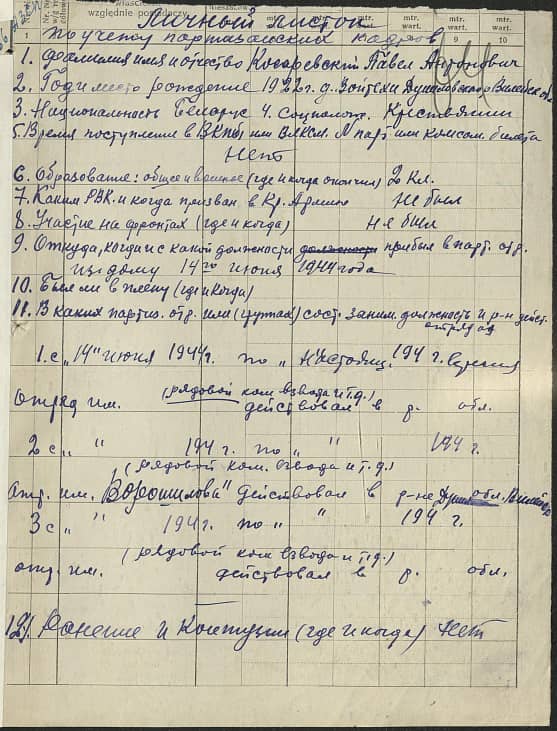 względnie posiadaczy
mtr. wart. mtr. wart. mtr. wart. mtr. wart.
9 10
Личный листок
по учету партизанских кадров
1. Фамилия имя и отчество Косаревский Павел Антонович
2. Год и место рождение 1922 г. д.
3. Национальность Беларус 4. Соцполож. Крестьянин
5. Время поступления в ВКП(б) или ВЛКСМ. N парт или комсом. билета
Нет
6. Образование: общее и военное (где и когда окончил) 2 кл.
7. Каким РВК. и когда призван в Кр. Армию не был
8. Участие на фронтах (где и когда) Не был
9. Откуда, когда и с какой должности должности прибыл в парт. отр.
из дому 14го июня 1944 года
10. Был ли в плену (где и когда)
11. В каких партиз. отр. или (группах) сост. заним. должность и р-н дейст.
отряда
1. с „14" июня 1944 г. по „ Настоящ. 194 г. время
(рядовой ком. взвода и т.д.)
Отряд им. действовал в р. обл.
2 с „ " 194 г. по „ " 194 г.
(рядовой ком. взвода и т.д.)
отр. им. Ворошилова" действовал в р-не обл.
3 с „ " 194 г. по „ " 194 г.
(рядовой ком взвода и т.д.)
отр. им. действовал в р. обл.
12). Ранение и Контузии (где и когда) нет